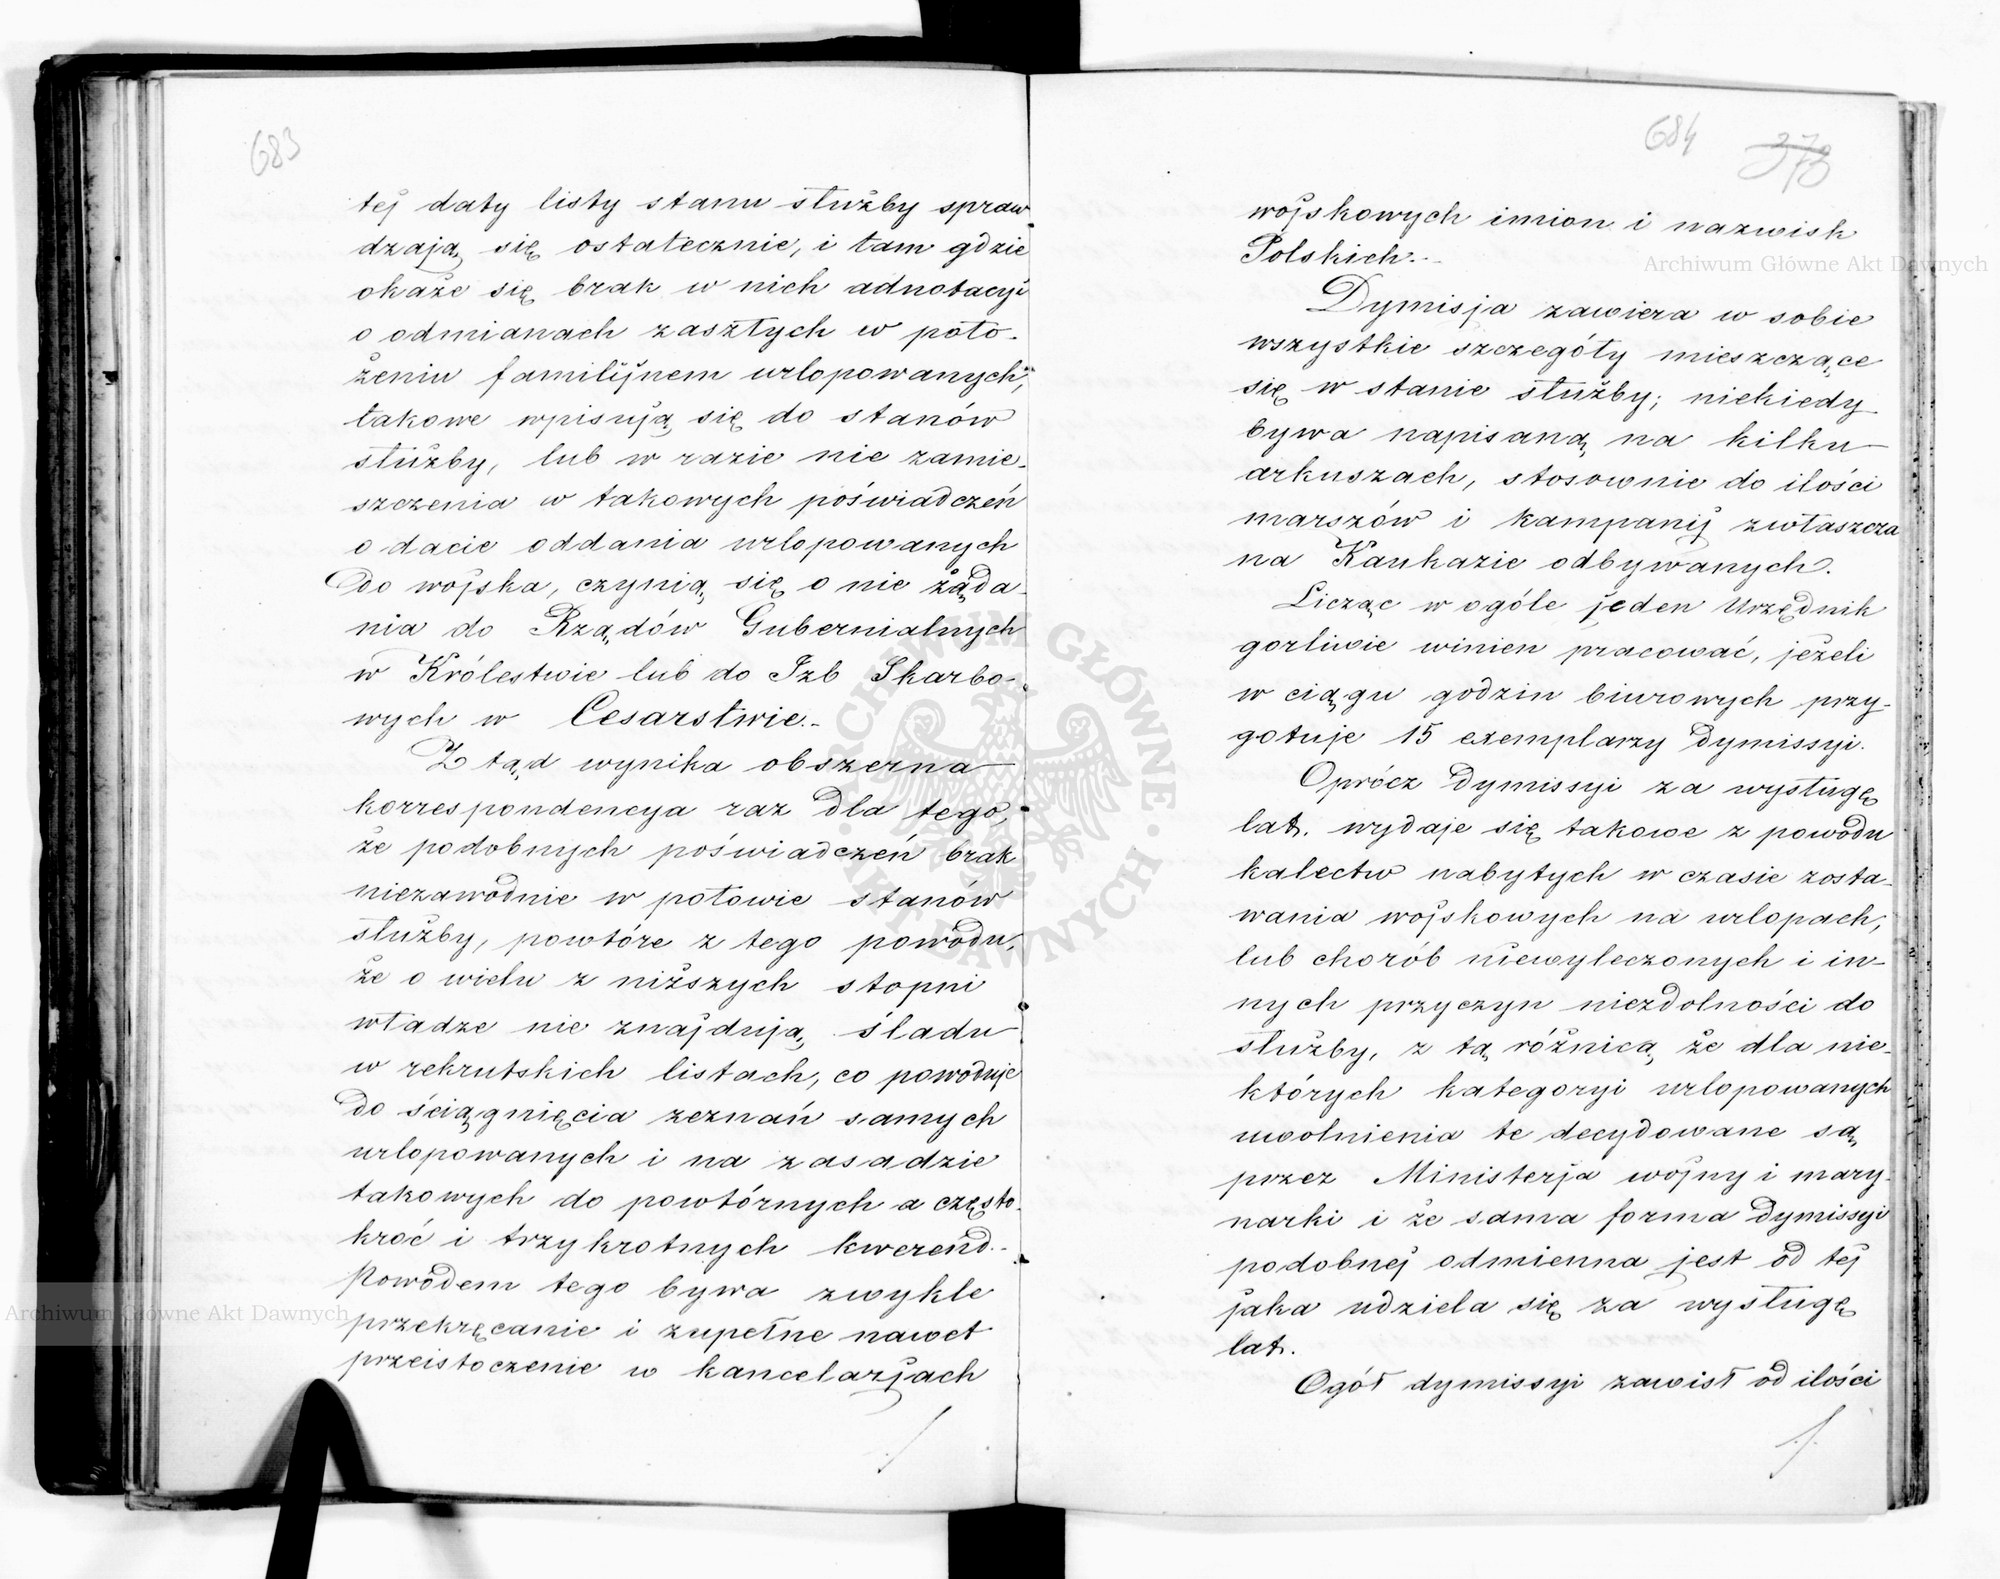 683
tej daty listy stanu służby spraw
dzają się ostatecznie, i tam gdzie
okaże się brak w nich adnotacyi
o odmianach zaszłych w poło-
żeniu familijnem urlopowanych,
takowe wpisują się do stanów
służby, lub w razie nie zamie-
szczenia w takowych poświadczeń
o dacie oddania urlopowanych
do wojska, czynią się o nie żąda-
nia do Rządów Gubernialnych
w Królestwie lub do Izb Skarbo-
wych w Cesarstwie.-
Z tąd wynika obszerna
korrespondencya raz dla tego,
że podobnych poświadczeń brak
niezawodnie w połowie stanów
służby, powtóre z tego powodu,
że o wielu z niższych stopni
władze nie znajdują śladu
w rekrutskich listach, co powoduje
do ściągnięcia zeznań samych
urlopowanych i na zasadzie
takowych do powtórnych a często-
kroć i trzykrotnych kwerend.-
Powodem tego bywa zwykle
przekręcanie i zupełne nawet
przeistoczenie w kancelarjach
684 378
wojskowych imion i nazwisk
Polskich.-
Dymisja zawiera w sobie
wszystkie szczegóły mieszczące
się w stanie służby; niekiedy
bywa napisaną na kilku
arkuszach, stosownie do ilości
marszów i kampanij zwłaszcza
na Kaukazie odbywanych.
Licząc w ogóle jeden Urzędnik
gorliwie winien pracować, jeżeli
w ciągu godzin biurowych przy-
gotuje 15 exemplarzy dymissyi.
Oprócz dymissyi za wysługę
lat. wydaje się takowe z powodu
kalectw nabytych w czasie zosta-
wania wojskowych na urlopach,
lub chorób niewyleczonych i in-
nych przyczyn niezdolności do
służby, z tą różnicą że dla nie-
których kategoryi urlopowanych
uwolnienia te decydowane są
przez Ministerja wojny i mary-
narki i że sama forma dymissyi
podobnej odmienna jest od tej
jaka udziela się za wysługę
lat.
Ogół dymissyi zawisł od ilości
Archiwum Główne Akt Dawnych
Archiwum Główne Akt Dawnych
ARCHIWUM GŁÓWNE · AKT DAWNYCH ·